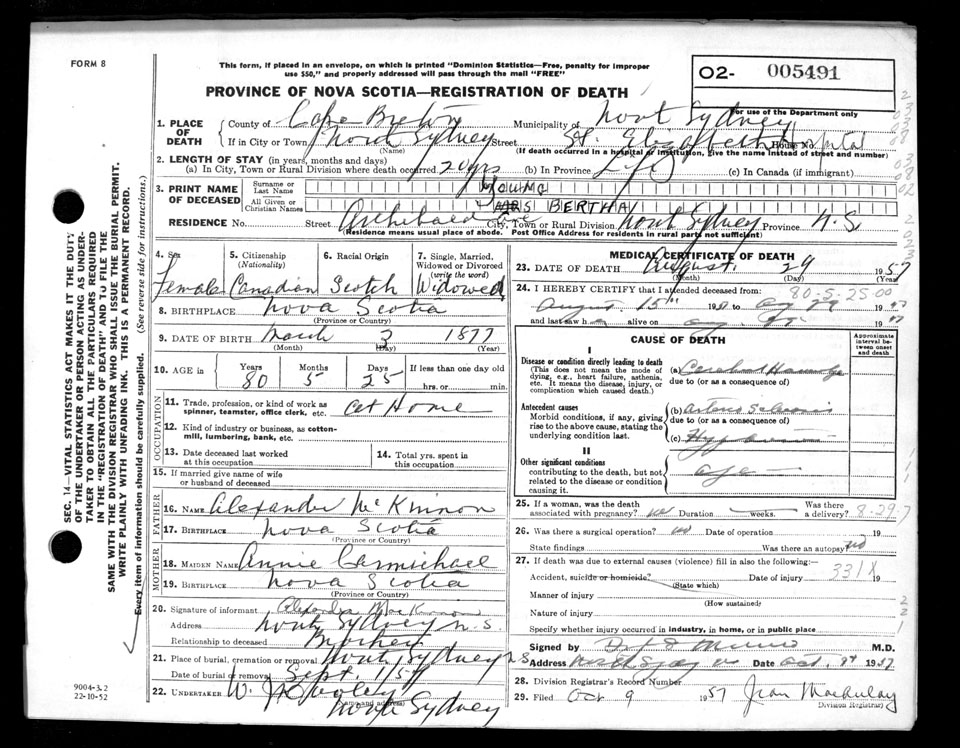 FORM 8
This form, if placed in an envelope, on which is printed "Dominion Statistics—Free, penalty for improper
use $50," and properly addressed will pass through the mail "FREE"
02- 005491
PROVINCE OF NOVA SCOTIA—REGISTRATION OF DEATH
For use of the Department only
1. PLACE OF DEATH County of Cape Breton Municipality of North Sydney
If in City or Town North Sydney Street St. Elizabeth Hospital House No.
(Name) (If death occurred in a hospital or institution, give the name instead of street and number)
2. LENGTH OF STAY (in years, months and days)
(a) In City, Town or Rural Division where death occurred (b) In Province Life (c) In Canada (if immigrant)
3. PRINT NAME OF DECEASED Surname or Last Name YOUNG
All Given or Christian Names MRS BERTHA
RESIDENCE No. Street Archibald Ave City, Town or Rural Division North Sydney Province N.S.
(Residence means usual place of abode. Post Office Address for residents in rural parts not sufficient)
4. Sex Female
5. Citizenship (Nationality) Canadian
6. Racial Origin Scotch
7. Single, Married, Widowed or Divorced (write the word) Widowed
8. BIRTHPLACE Nova Scotia
(Province or Country)
9. DATE OF BIRTH March 3 1877
(Month) (Day) (Year)
10. AGE in Years 80 Months 5 Days 25 If less than one day old
hrs. or min.
OCCUPATION
11. Trade, profession, or kind of work as spinner, teamster, office clerk, etc. At Home
12. Kind of industry or business, as cotton-mill, lumbering, bank, etc.
13. Date deceased last worked at this occupation
14. Total yrs. spent in this occupation
15. If married give name of wife or husband of deceased
FATHER
16. NAME Alexander McKinnon
17. BIRTHPLACE Nova Scotia
(Province or Country)
MOTHER
18. MAIDEN NAME Annie Carmichael
19. BIRTHPLACE Nova Scotia
(Province or Country)
20. Signature of informant Alexander MacKinnon
Address North Sydney N.S.
Relationship to deceased Brother
21. Place of burial, cremation or removal North Sydney N.S
Date of burial or removal Sept. 1/57
22. UNDERTAKER W.
(Name and address) North Sydney
MEDICAL CERTIFICATE OF DEATH
23. DATE OF DEATH August 29 1957
24. I HEREBY CERTIFY that I attended deceased from: 80-5-25-00
August 15th 1957 to 1957
and last saw h alive on 1957
CAUSE OF DEATH
Approximate interval between onset and death
I
Disease or condition directly leading to death
(This does not mean the mode of dying, e.g., heart failure, asthenia, etc. It means the disease, injury, or complication which caused death.)
(a) Cerebral Hemorrhage
due to (or as a consequence of)
Antecedent causes
Morbid conditions, if any, giving rise to the above cause, stating the underlying condition last.
(b) Arterio Sclerosis
due to (or as a consequence of)
(c) Hypertension
II
Other significant conditions
contributing to the death, but not related to the disease or condition causing it.
age
25. If a woman, was the death associated with pregnancy? no Duration weeks. Was there a delivery? 8-29-7
26. Was there a surgical operation? no Date of operation 19
State findings Was there an autopsy no
27. If death was due to external causes (violence) fill in also the following:—
Accident, suicide or homicide? Date of injury 331X 19
(State which)
Manner of injury
(How sustained)
Nature of injury
Specify whether injury occurred in industry, in home, or in public place
Signed by M.D.
Address North Sydney NS Date Oct. 1957
28. Division Registrar's Record Number
29. Filed Oct 9 1957 Jean MacAulay
Division Registrar
SEC. 14—VITAL STATISTICS ACT MAKES IT THE DUTY
OF THE UNDERTAKER OR PERSON ACTING AS UNDER-
TAKER TO OBTAIN ALL THE PARTICULARS REQUIRED
IN THE "REGISTRATION OF DEATH" AND TO FILE THE
SAME WITH THE DIVISION REGISTRAR WHO SHALL ISSUE THE BURIAL PERMIT.
WRITE PLAINLY WITH UNFADING INK. THIS IS A PERMANENT RECORD.
Every item of information should be carefully supplied. (See reverse side for instructions.)
9004-3.2
22-10-52